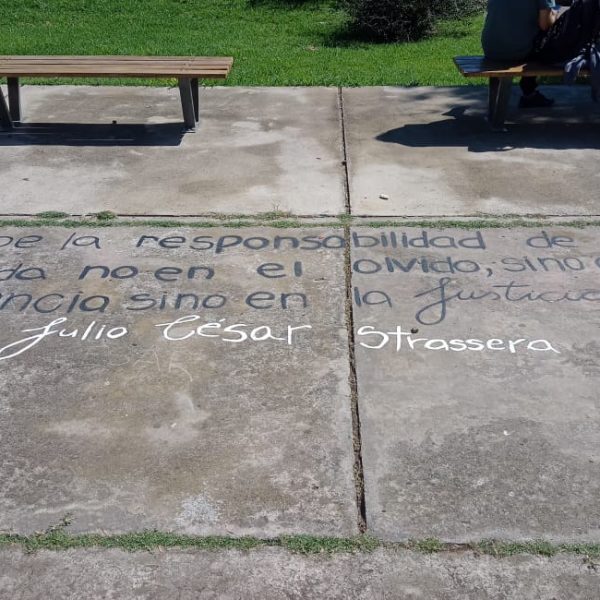 la responsabilidad de
no en el olvido, sino
sino en la Justicia
Julio César Strassera